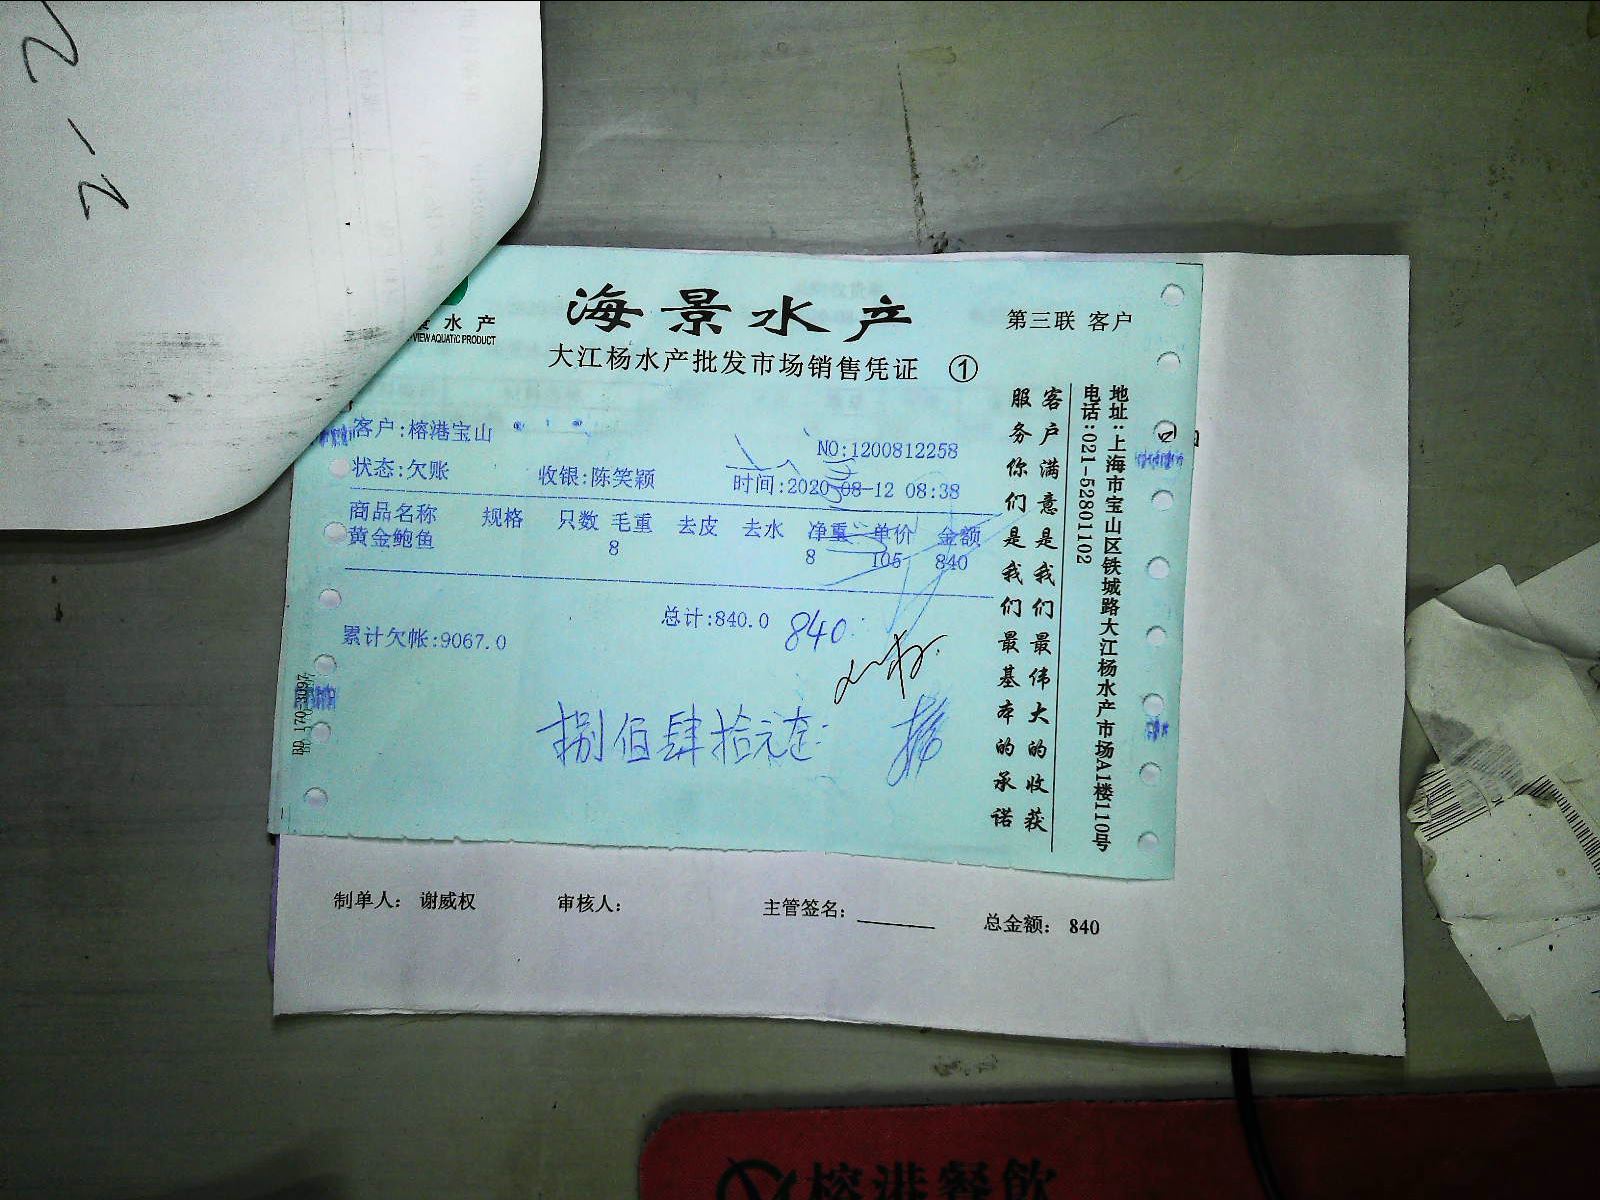 2-2
水产
VIEW AQUATIC PRODUCT
海景水产
第三联 客户
大江杨水产批发市场销售凭证 ①
客户:榕港宝山
NO:1200812258
状态:欠账 收银:陈笑颖 时间:2020-08-12 08:38
商品名称 规格 只数 毛重 去皮 去水 净重 单价 金额
黄金鲍鱼 8 8 105 840
总计:840.0 840.
累计欠帐:9067.0
捌佰肆拾元整
客户满意是我们最伟大的收获
服务你们是我们最基本的承诺
地址:上海市宝山区铁城路大江杨水产市场A1楼110号
电话:021-52801102
制单人: 谢威权 审核人: 主管签名: 总金额: 840
榕港餐飲